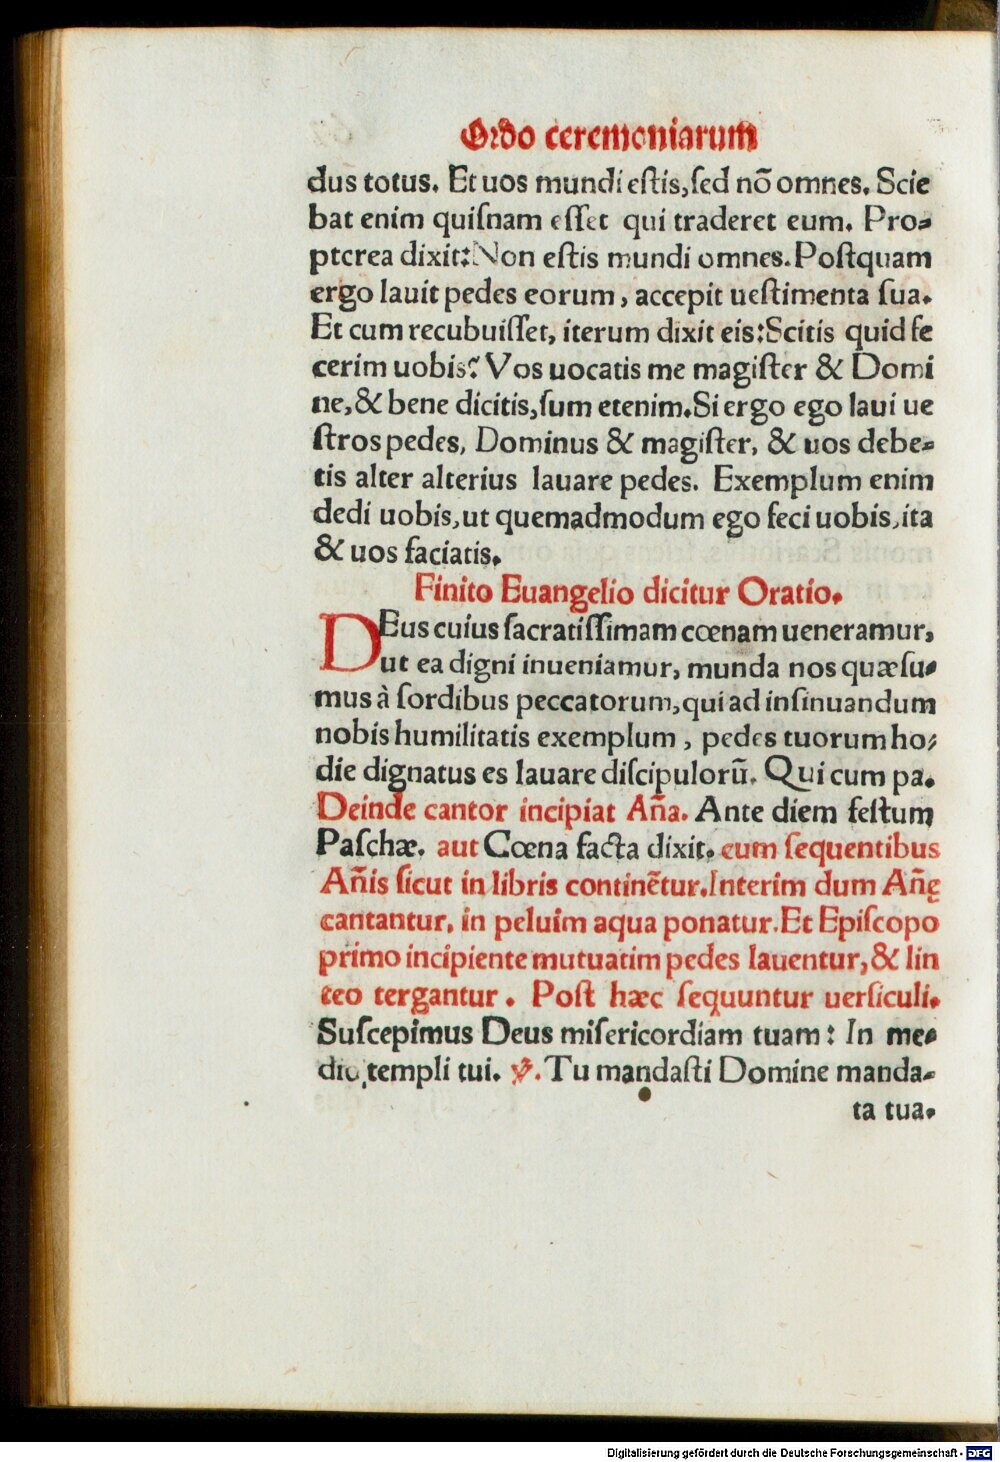 Ordo ceremoniarum
dus totus. Et uos mundi estis, sed nõ omnes. Scie
bat enim quisnam esset qui traderet eum. Pro-
pterea dixit: Non estis mundi omnes. Postquam
ergo lauit pedes eorum, accepit uestimenta sua.
Et cum recubuisset, iterum dixit eis: Scitis quid fe
cerim uobis? Vos uocatis me magister & Domi
ne, & bene dicitis, sum etenim. Si ergo ego laui ue
stros pedes, Dominus & magister, & uos debe-
tis alter alterius lauare pedes. Exemplum enim
dedi uobis, ut quemadmodum ego feci uobis, ita
& uos faciatis.
Finito Euangelio dicitur Oratio.
DEus cuius sacratissimam cœnam ueneramur,
ut ea digni inueniamur, munda nos quæsu-
mus à sordibus peccatorum, qui ad insinuandum
nobis humilitatis exemplum, pedes tuorum ho-
die dignatus es lauare discipulorũ. Qui cum pa.
Deinde cantor incipiat Añа. Ante diem festum
Paschæ. aut Cœna facta dixit. cum sequentibus
Añis sicut in libris continẽtur. Interim dum Añę
cantantur, in peluim aqua ponatur. Et Episcopo
primo incipiente mutuatim pedes lauentur, & lin
teo tergantur. Post hæc sequuntur uersiculi.
Suscepimus Deus misericordiam tuam: In me-
dio templi tui. ℣. Tu mandasti Domine manda-
ta tua.
Digitalisierung gefördert durch die Deutsche Forschungsgemeinschaft - DFG